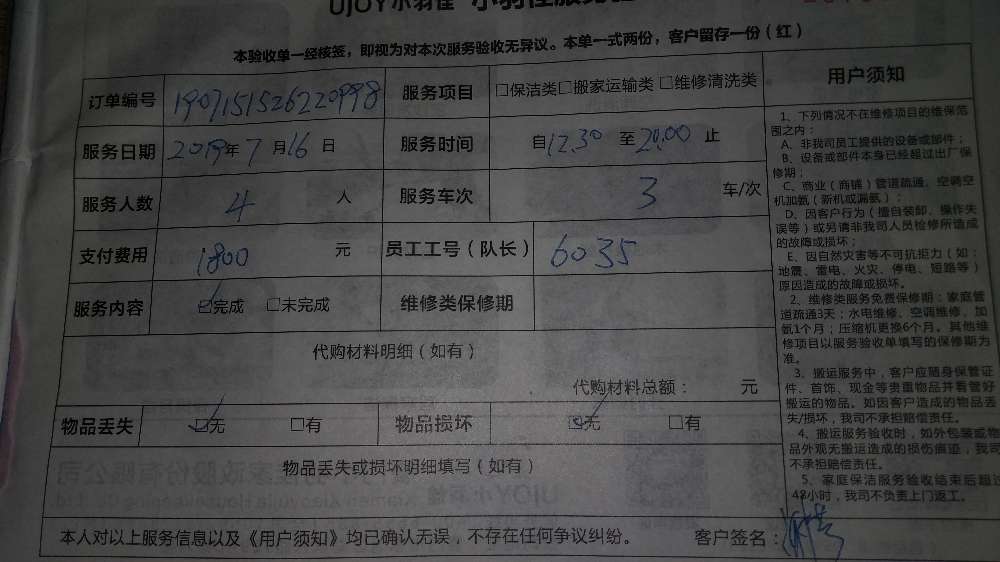 UJOY小羽佳
本验收单一经核签，即视为对本次服务验收无异议。本单一式两份，客户留存一份（红）
订单编号 1907151526220998 服务项目 □保洁类□搬家运输类 □维修清洗类
服务日期 2019年7月16日 服务时间 自12.30至20.00止
服务人数 4 人 服务车次 3 车/次
支付费用 1800 元 员工工号（队长） 6035
服务内容 ☑完成 □未完成 维修类保修期
代购材料明细（如有）
代购材料总额： 元
物品丢失 ☑无 □有 物品损坏 ☑无 □有
物品丢失或损坏明细填写（如有）
本人对以上服务信息以及《用户须知》均已确认无误，不存在任何争议纠纷。 客户签名：
用户须知
1、下列情况不在维修项目的维保范
围之内：
A、非我司员工提供的设备或部件；
B、设备或部件本身已经超过出厂保
修期；
C、商业（商铺）管道疏通、空调空
机加氨（新机或漏氨）；
D、因客户行为（擅自装卸、操作失
误等）或另请非我司人员检修所造成
的故障或损坏；
E、因自然灾害等不可抗拒力（如：
地震、雷电、火灾、停电、短路等）
原因造成的故障或损坏。
2、维修类服务免费保修期：家庭管
道疏通3天；水电维修、空调维修、加
氨1个月；压缩机更换6个月。其他维
修项目以服务验收单填写的保修期为
准。
3、搬运服务中，客户应随身保管证
件、首饰、现金等贵重物品并看管好
搬运的物品。如因客户造成的物品丢
失/损坏，我司不承担赔偿责任。
4、搬运服务验收时，如外包装或物
品外观无搬运造成的损伤痕迹，我司
不承担赔偿责任。
5、家庭保洁服务验收结束后超过
48小时，我司不负责上门返工。